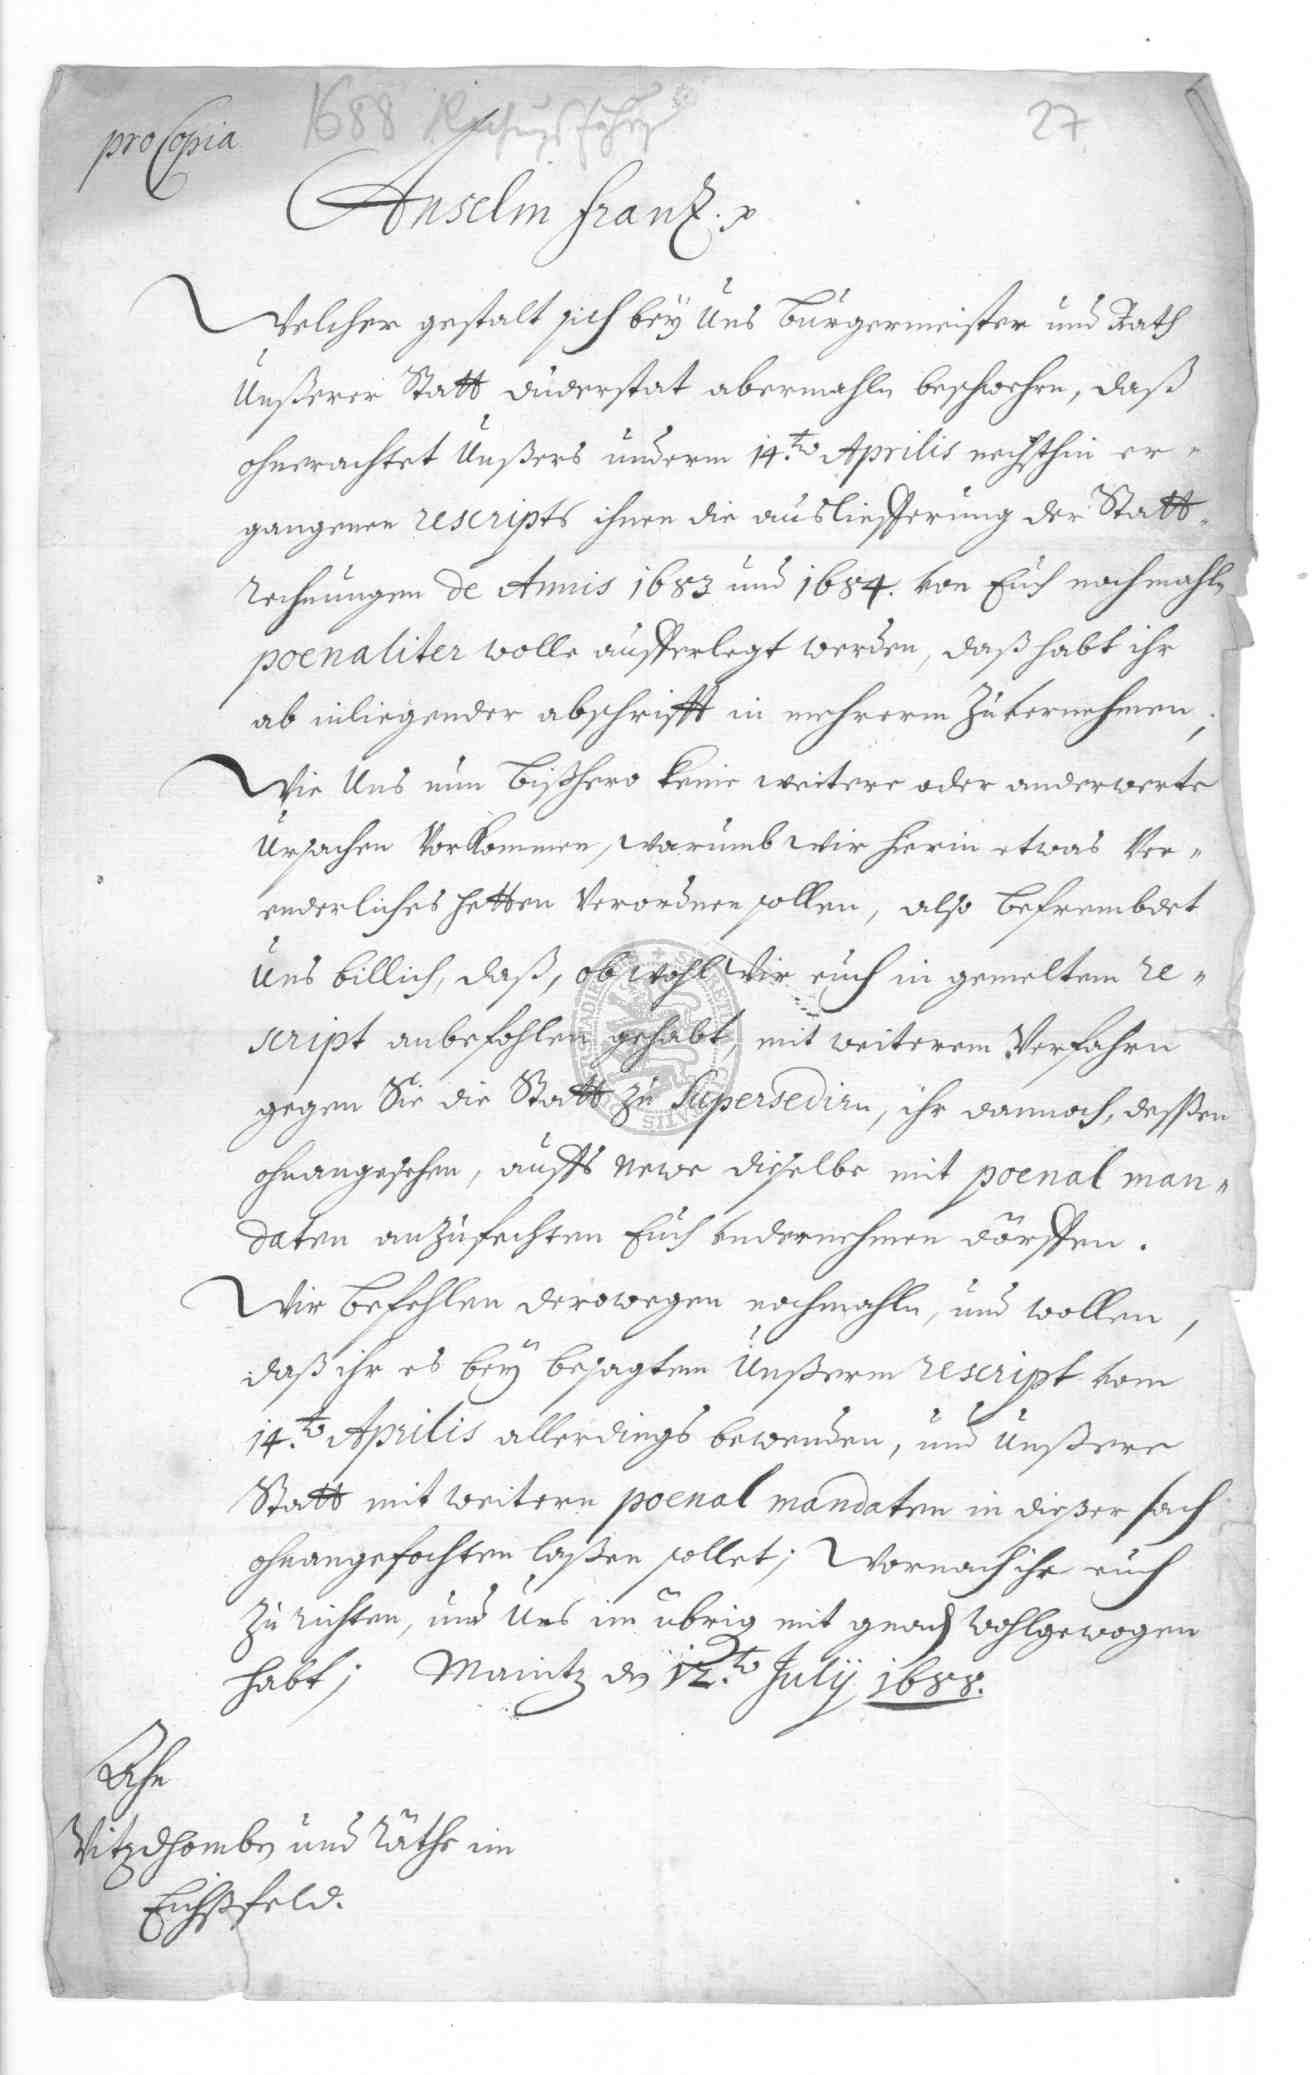 pro Copia
1688
27
Anselm Frantz. p
Welcher gestalt sich beÿ Uns Burgermeister und Rath
Unßerer Statt Duderstat abermahln beschwehrn, daß
ohnerachtet Unßers underm 14.to Aprilis nechsthin er-
gangenen rescripts ihnen die auslieffterung der Statt-
rechnungen de Annis 1683 und 1684. von Euch nochmahln
poenaliter wolle aufferlegt werden, daß habt ihr
ab inliegender abschrifft in mehrerm zuvernehmen,
Wie Uns nun bißhero keine weitere oder anderwerte
Ursachen Vorkommen, warumb wir hierin etwas Ver-
enderliches hetten Verordnen sollen, also befrembdet
Uns billich, daß, obwohl Wir euch in gemeltem re-
script anbefohlen gehabt, mit weiterem Verfahrn
gegen Sie die Statt zu Supersedirn, ihr dannoch, dessßen
ohnangesehen, auffs newe dieselbe mit poenal man-
daten anzufechten Euch undernehmen dörfften.
Wir befehlen derowegen nochmahln, und wollen,
daß ihr es beÿ besagtem Unßerm rescript vom
14.to Aprilis allerdings bewenden, und Unßere
Statt mit weitern poenal mandaten in dießer sach
ohnangefochten laßen sollet; Wornach ihr euch
zu richten, und Uns im übrig mit gnad wohlgewogen
habt; Maintz dn 12.to Julij 1688.
Ahn
Vitzdhombn und Räthe im
Eichßfeld.